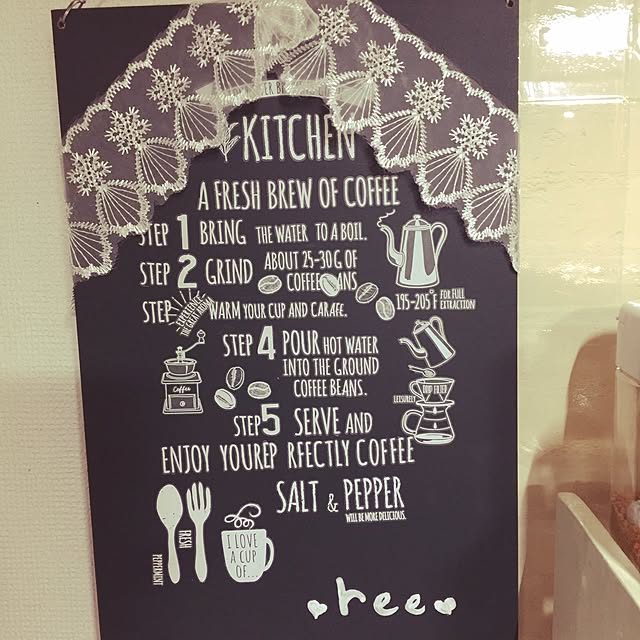 KITCHEN
A FRESH BREW OF COFFEE
STEP 1 BRING THE WATER TO A BOIL.
STEP 2 GRIND ABOUT 25-30G OF
COFFEE ANS
195-205°F FOR FULL
EXTRACTION
STEP WARM YOUR CUP AND CARAFE.
STEP 4 POUR HOT WATER
INTO THE GROUND
COFFEE BEANS.
Coffee
LEISURELY
STEP 5 SERVE AND
ENJOY YOUREP RFECTLY COFFEE
SALT & PEPPER
WILL BE MORE DELICIOUS.
FRESH
PEPPERMINT
I LOVE
A CUP
OF...
ree